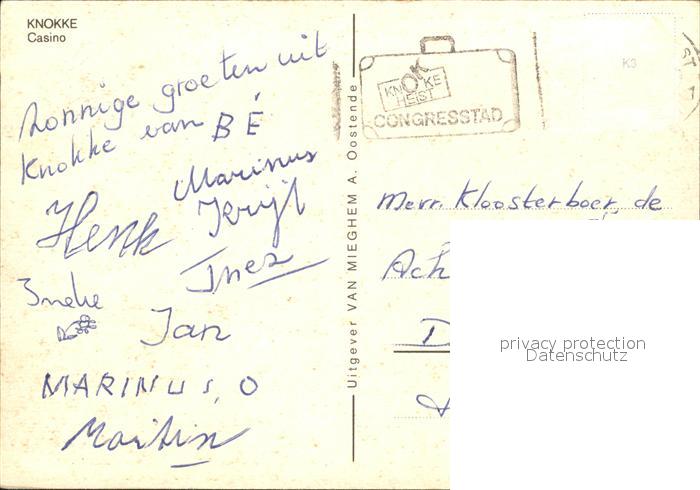 KNOKKE
Casino
Zonnige groeten uit
Knokke van BÉ
Marinus
Krijt
Henk
Ines
Ineke
Jan
MARINUS, O
Martin
Uitgever VAN MIEGHEM A. Oostende
KNOKKE
HEIST
CONGRESSTAD
K3
Mevr. Kloosterboer, de
Ach
D
privacy protection
Datenschutz